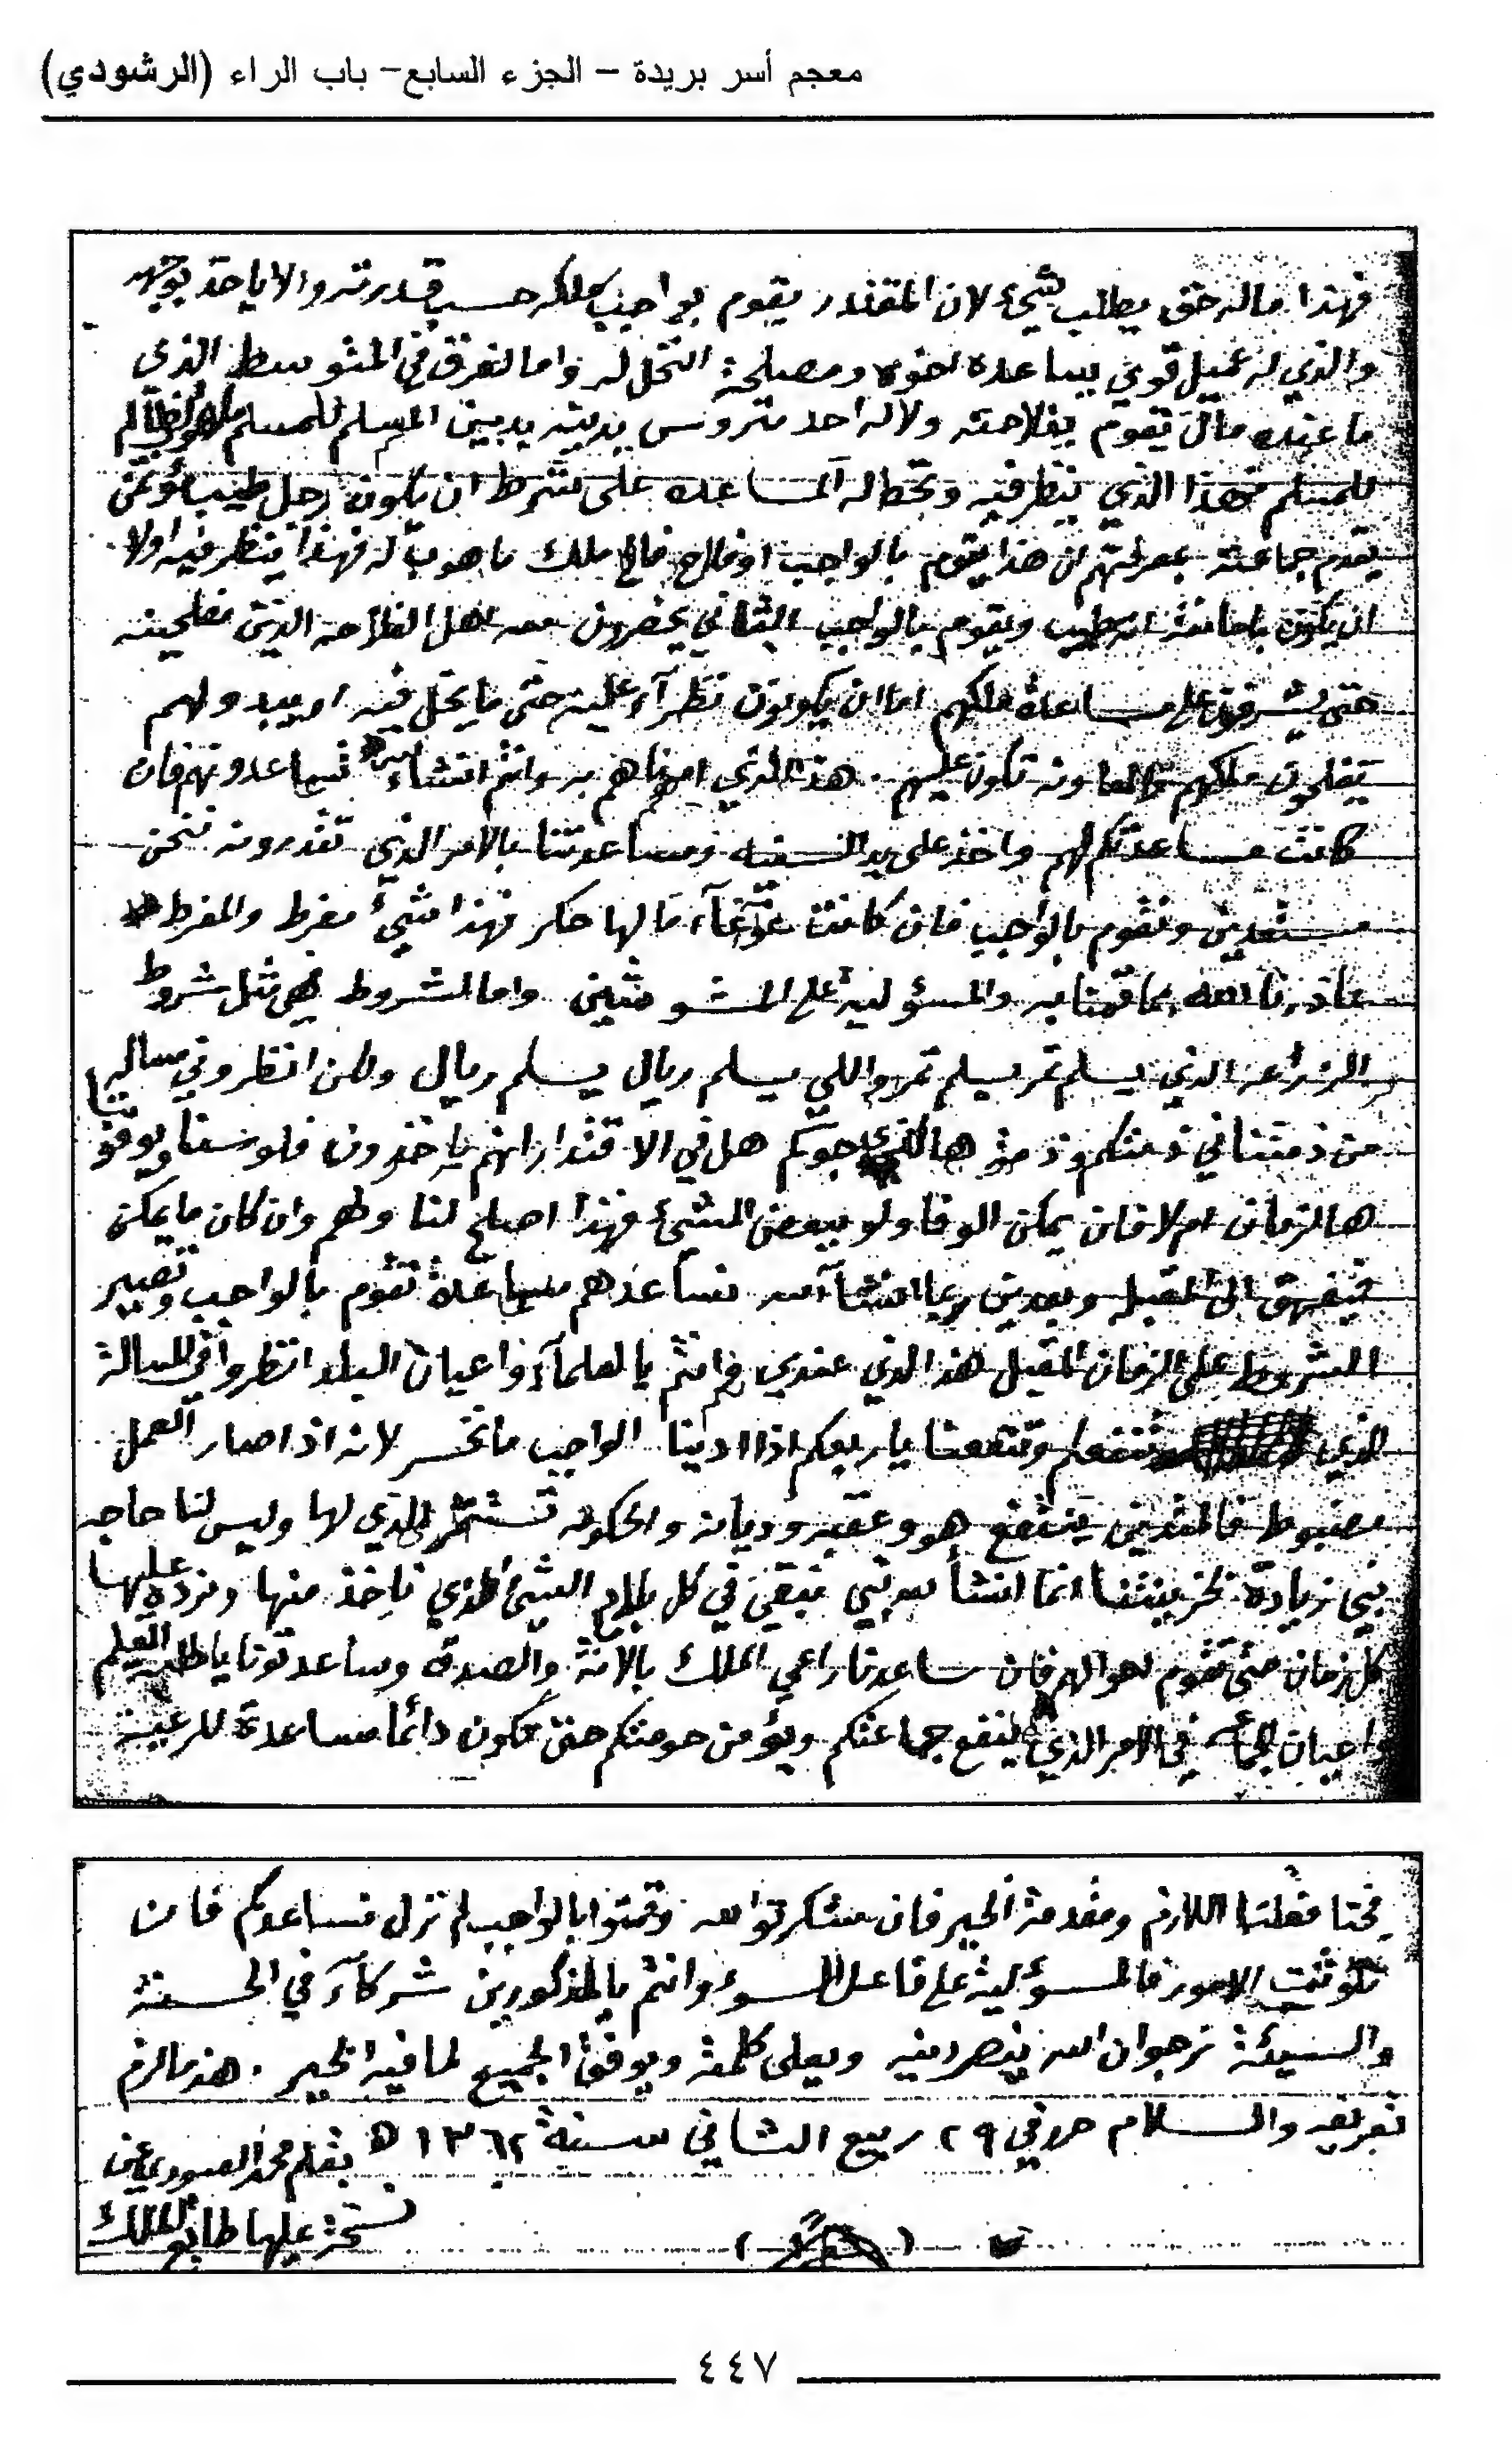 معجم أسر بريدة – الجزء السابع– باب الراء (الرشودي)
فهذا ماله حق يطلب شيء لان المقتدر يقوم بواجب ملكه حسب قدرته والا ياخذ بوجهه
والذي له عميل قوي يساعده اخوه ومصلحة النخل له واما الفرق في المتوسط الذي
ما عنده مال تقوم بفلاحته ولا له احد متروس يدينه بدين المسلم للمسلم
للمسلم فهذا الذي ينظر فيه ويحط له المساعده على شرط ان يكون رجل طيب
جماعته بمعرفتهم ان هذا يقوم بالواجب او فلاح فالح ملك ما هوب له فهذا ينظر فيه اولا
ان يكون بامانته انه طيب ويقوم بالواجب الثاني يحضرون معه اهل الفلاحه الذين مفلحينه
حتى يشرفون على مساعدة ملكهم اما ان يكونون نظرآء عليه حتى ما يخل فيه او بيد ولهم
يفلحون ملكهم والمعاونه تكون عليهم . هذا الذي امرناهم به وانتم انشاء الله تساعدونهم فان
كانت مساعدتكم لهم واخذ على يد السفيه ومساعدتنا بالامر الذي تقدرونه فنحن
مستعدين ونقوم بالواجب فان كانت غوغآء ما لها حكر فهذا شيء مفرط والمفرط
عاذرنا الله بما قمنا به والمسؤلية على المشوشين واما الشروط فهي مثل شروط
الزراعه الذي يسلم تمر يسلم تمر واللي يسلم ريال يسلم ريال ولكن انظروا في مسالة
من ذمتنا في ذمتكم وذمة هل في الاقتدار انهم ياخذون فلوسنا ويوفون
هالزمان ام لا فان يمكن الوفا ولو ببعض الشيء فهذا اصلح لنا ولهم وان كان ما يمكن
الى المقبله وبعدين انشاء الله نساعدهم مساعدة تقوم بالواجب وتصير
الشروط على الزمان المقبل هذا الذي عندي وانتم يا العلمآء واعيان البلد انظروا في المسالة
الذي تنفعكم وتنفعنا يا ربعكم اذا ادينا الواجب ما نخسر لانه اذا صار العمل
مضبوط فالمتدين ينتفع هو وعقبه وديانه والحكومه تستثمر الذي لها وليس لنا حاجه
نبي زيادة لخزينتنا انما انشأ الله نبي نبقي في كل بلد الشيء الذي ناخذ منها ونرده عليها
كل زمان حتى تقوم احوالهم فان ساعدنا راعي الملك بالامنة والصدق وساعدتونا يا طلبة العلم
واعيان في الامر الذي ينفع جماعتكم ويؤمن حومتكم حتى تكون دائما مساعدة للرعية
فحنا فعلنا اللازم ومقدمة الخير فان شكرتوا الله وقمتوا بالواجب لم نزل نساعدكم فان
تلوثت الامور فالمسؤلية على فاعل السوء وانتم يا المذكورين شركآء في الحسنة
والسيئة نرجوا ان الله ينصر دينه ويعلى كلمته ويوفق الجميع لما فيه الخير . هذا ما لزم
تعريفه والسلام حرر في ٢٩ ربيع الثاني سنة ١٣٦٢ ه بقلم محمد العبودي عن
نسخة عليها طابع الملك
٤٤٧